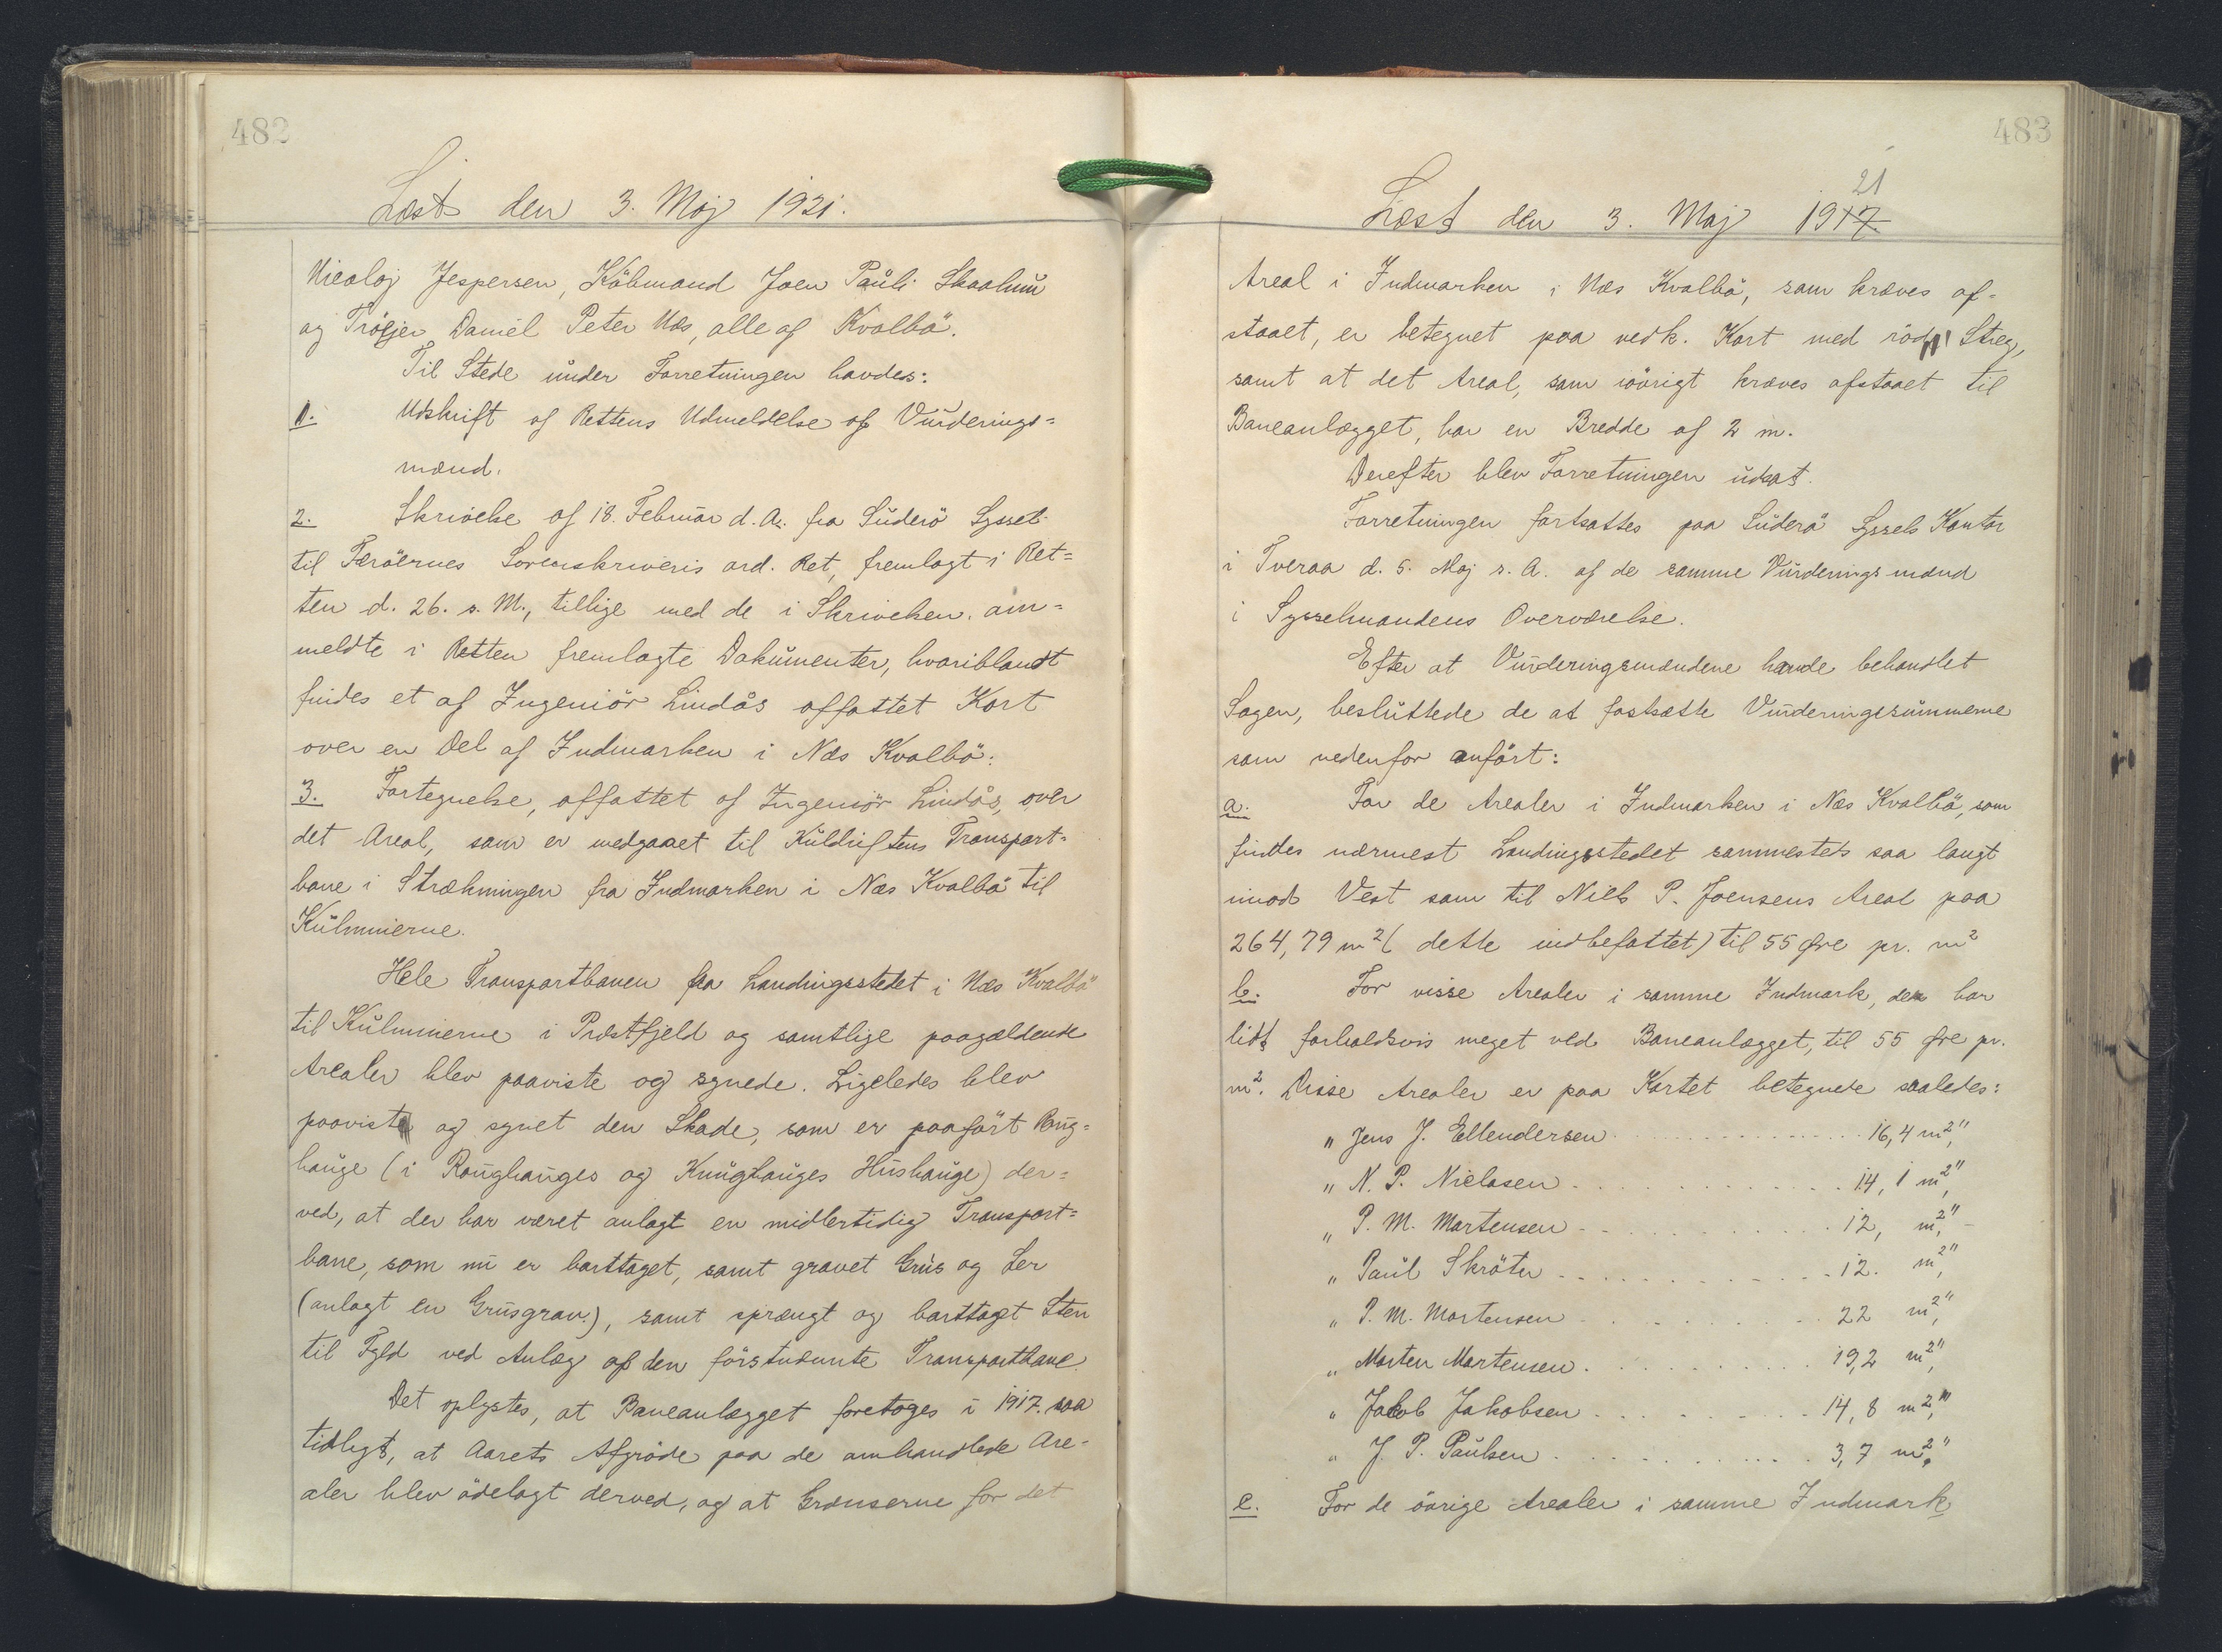 482
Læst den 3. Maj 1921.
Nicolaj Jespersen, Köbmand Joen Pauli Skaalum
og Tröjer Daniel Peter Næs, alle af Kvalbö.
Til Stede under Forretningen havdes:
1. Udskrift af Rettens Udmeldelse af Vurderings=
mænd.
2. Skrivelse af 18. Februar d. A. fra Suderö Syssel
til Færöernes Sorenskriveris ord. Ret, fremlagt i Ret=
ten d. 26. s. M., tillige med de i Skrivelsen om=
meldte i Retten fremlagte Dokumenter, hvoriblandt
findes et af Ingeniör Lindås affattet Kort
over en Del af Indmarken i Næs Kvalbö.
3. Fortegnelse, affattet af Ingeniör Lindås, over
det Areal, som er medgaaet til Kuldriftens Transport=
bane i Strækningen fra Indmarken i Næs Kvalbö til
Kulminerne.
Hele Transportbanen fra Landingsstedet i Næs Kvalbö
til Kulminerne i Præstfjeld og samtlige paagældende
Arealer blev paaviste og synede. Ligeledes blev
paavist og synet den Skade, som er paafört Rug=
hauge (i Roughauges og Knughauges Hushauge) der=
ved, at der har været anlagt en midlertidig Transport=
bane, som nu er borttaget, samt gravet Grus og Ler
(anlagt en Grusgrav.), samt sprængt og borttaget Sten
til Fyld ved Anlæg af den förstnævnte Transportbane.
Det oplystes, at Baneanlægget foretoges i 1917. saa
tidligt, at Aarets Afgröde paa de omhandlede Are=
aler blev ödelagt derved, og at Grænserne for det
483
21
Læst den 3. Maj 1917.
Areal i Indmarken i Næs Kvalbö, som kræves af=
staaet, er betegnet paa vedk. Kort med röd Streg,
samt at det Areal, som iövrigt kræves afstaaet til
Baneanlægget, har en Bredde af 2 m.
Derefter blev Forretningen udsat.
Forretningen fortsattes paa Suderö Syssels Kontor
i Tveraa d. 5. Maj s. A. af de samme Vurderingsmænd
i Sysselmandens Overværelse.
Efter at Vurderingsmændene havde behandlet
Sagen, besluttede de at fastsætte Vurderingssummerne
som nedenfor anfört:
a. For de Arealer i Indmarken i Næs Kvalbö, som
findes nærmest Landingsstedet sammesteds saa langt
imod Vest som til Niels P. Joensens Areal paa
264,79 m² (dette indbefattet) til 55 Øre pr. m²
b. For visse Arealer i samme Indmark, der har
lidt forholdsvis meget ved Baneanlægget, til 55 Øre pr.
m². Disse Arealer er paa Kortet betegnede saaledes:
" Jens J. Ellendersen . . . . . . 16,4 m²,"
" N. P. Nielasen . . . . . . 14,1 m²,"
" P. M. Mortensen . . . . . . 12, m²," -
" Paul Skröter . . . . . . 12. m²,"
" P. M. Mortensen . . . . . . 22 m²,"
" Morten Mortensen . . . . . . 19,2 m²,"
" Jakob Jakobsen . . . . . . 14,8 m²,"
" J. P. Paulsen . . . . . . 3,7 m²."
c. For de övrige Arealer i samme Indmark